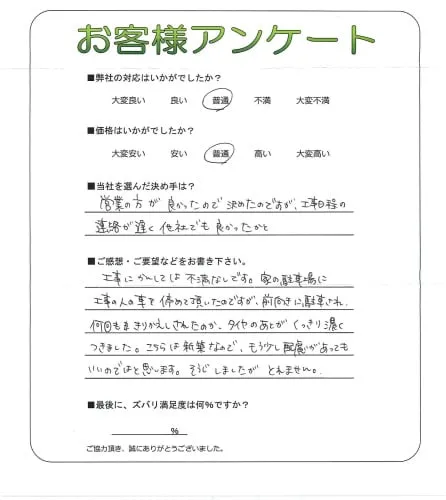 お客様アンケート
■弊社の対応はいかがでしたか？
大変良い 良い 普通 不満 大変不満
■価格はいかがでしたか？
大変安い 安い 普通 高い 大変高い
■当社を選んだ決め手は？
営業の方が良かったので決めたのですが、工事日程の
連絡が遅く他社でも良かったかと
■ご感想・ご要望などをお書き下さい。
工事にかんしては不満なしです。家の駐車場に
工事の人の車を停めて頂いたのですが、前向きに駐車され、
何回もまきりかえしされたのか、タイヤのあとがくっきり濃く
つきました。こちらは新築なので、もう少し配慮があっても
いいのではと思います。そうじしましたがとれません。
■最後に、ズバリ満足度は何％ですか？
％
ご協力頂き、誠にありがとうございました。